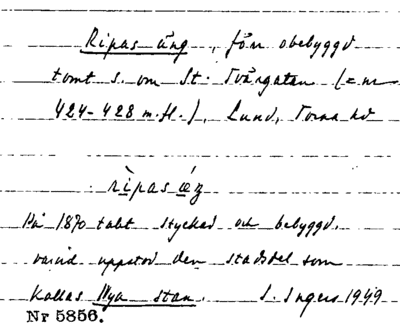 Ripas äng, förr obebyggd
tomt s. om St. Tvärgatan (= nr
424-428 m.fl.), Lund, Torna hd
rìpas ǽŋ
På 1870 talet styckad och bebyggd,
varvid uppstod den stadsdel som
kallas Nya stan. I. Ingers 1949
Nr 5856.